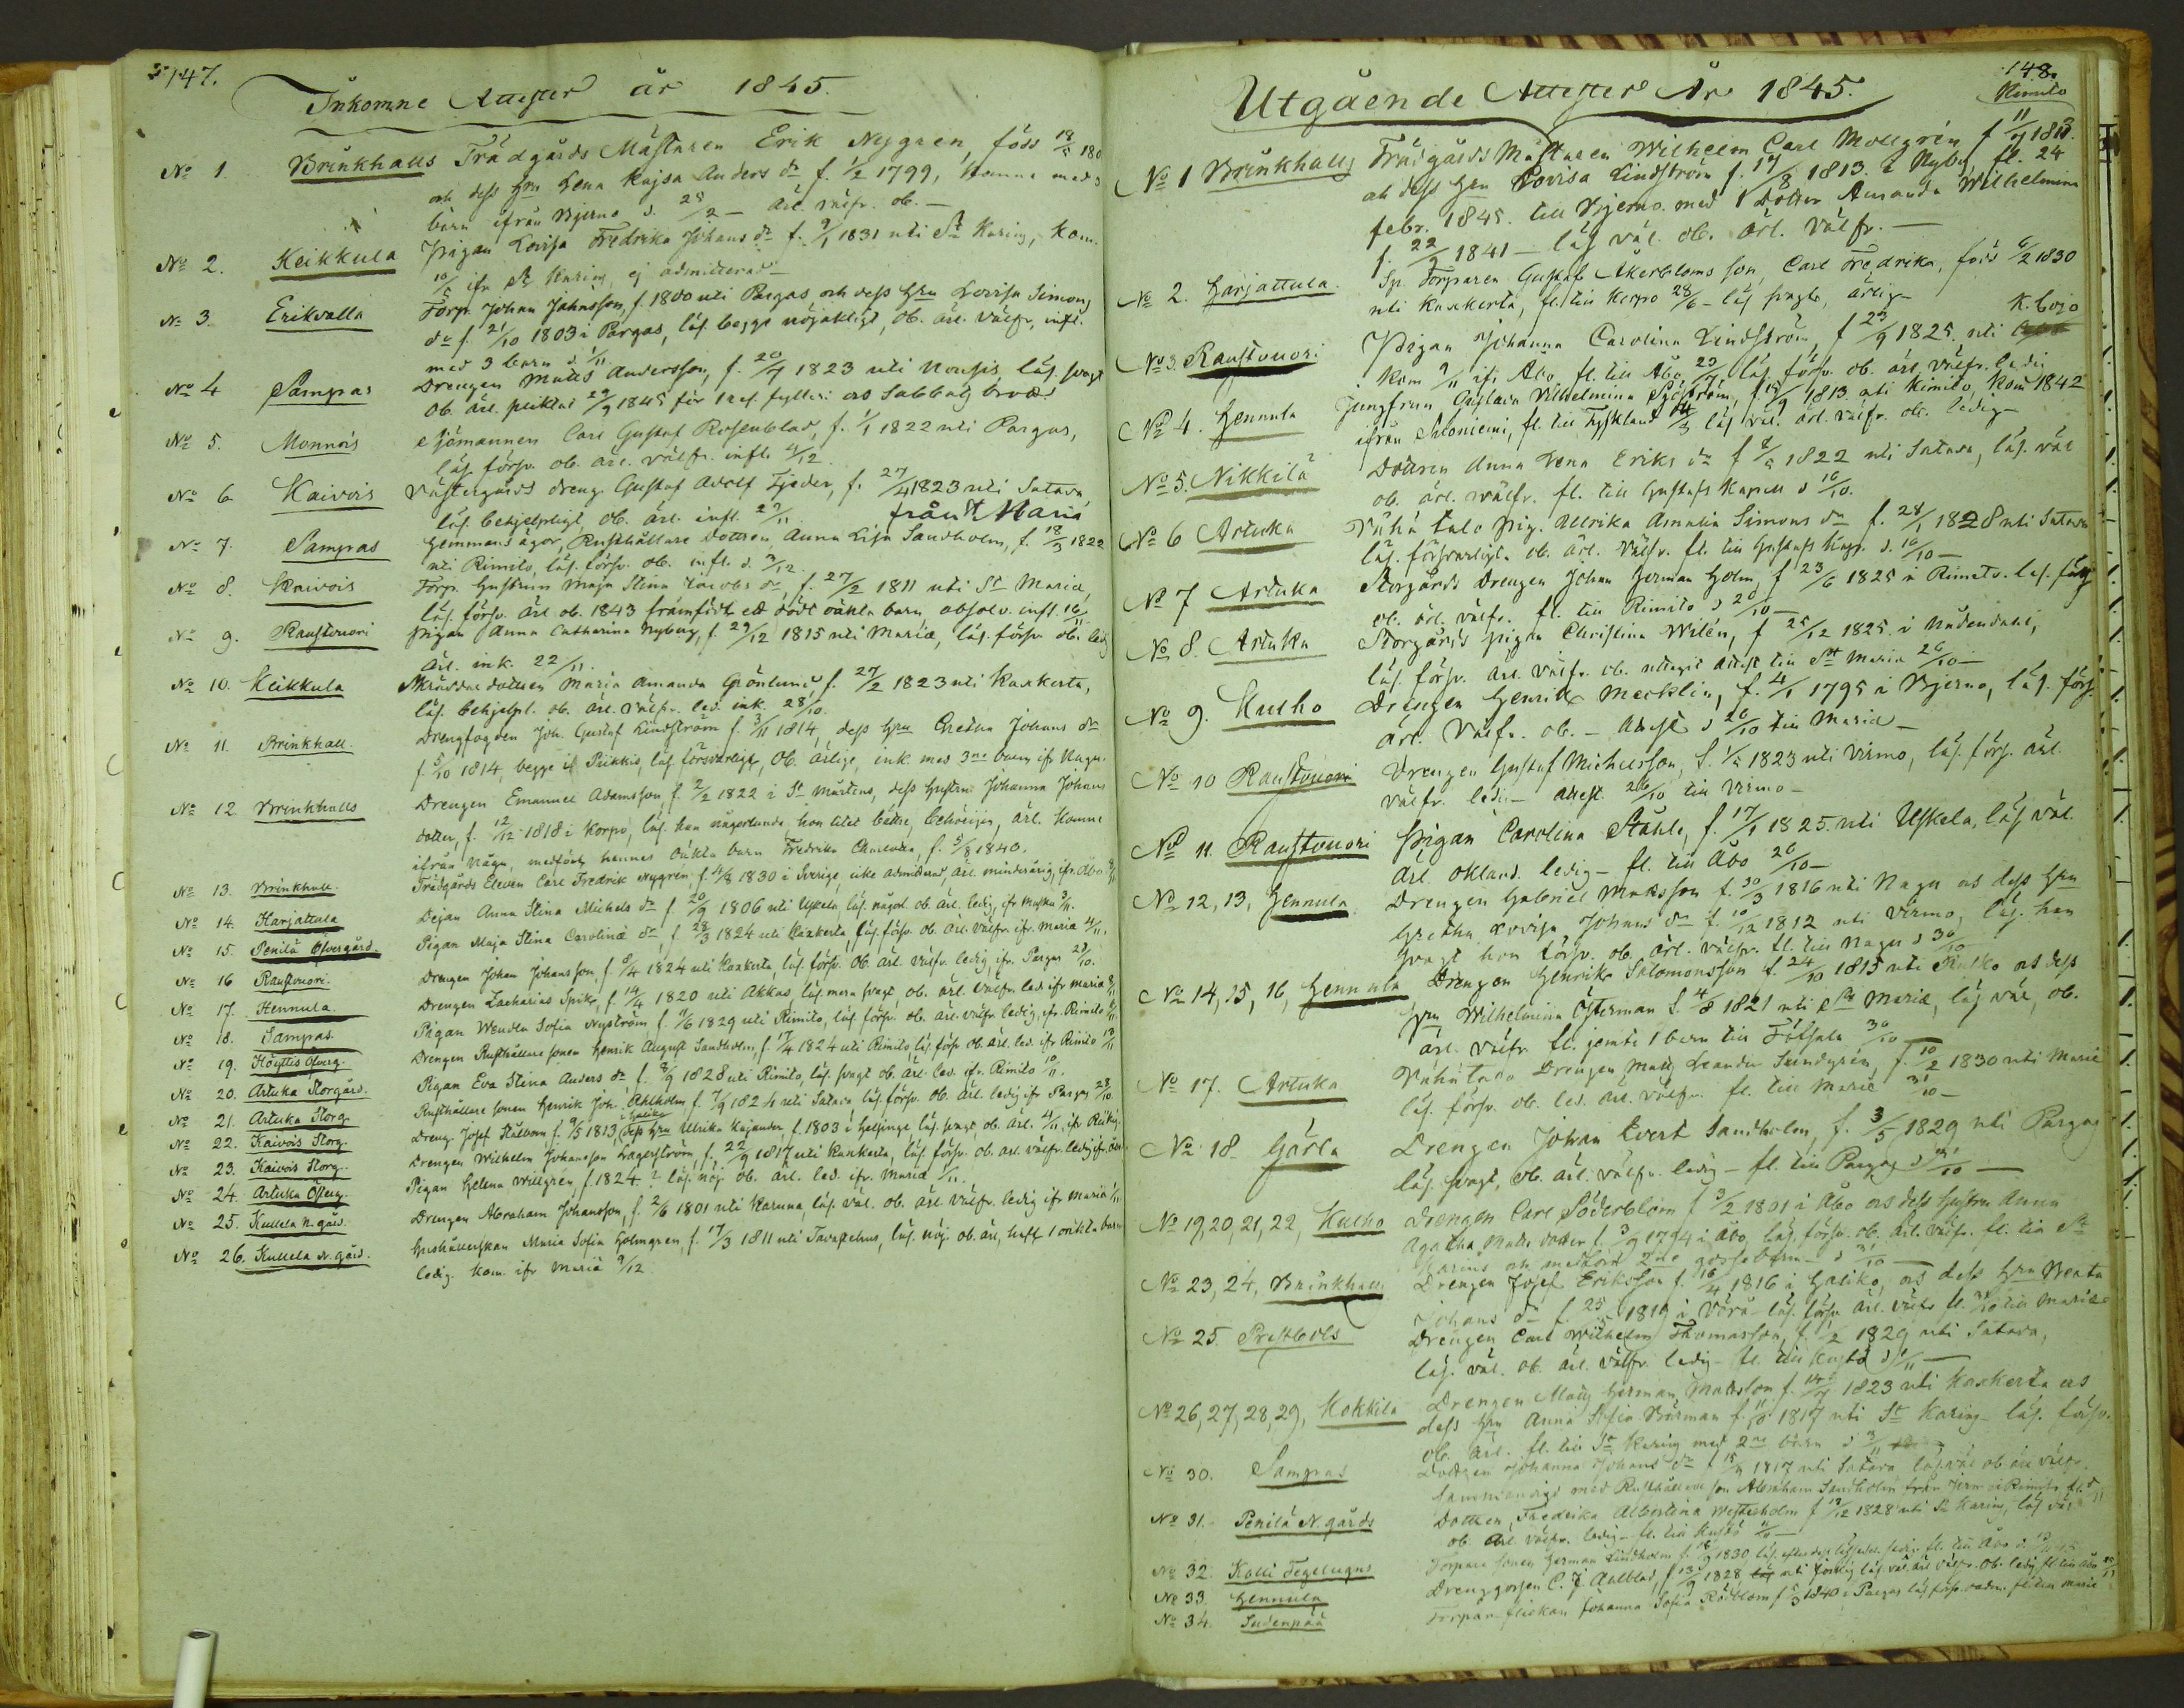 147.
Inkomne Attester år 1845.
No 1. Brinkhalls Trädgårds Mästaren Erik Nygren, född 18/5 180
och dess Hru Lena Kajsa Anders dr f. 1/2 1799, komne med 3
barn ifrån Bjerno d. 25/2 - ärl. välfr. ob. -
No 2. Keikkula Pigan Lovisa Fredrika Johans dr f. 9/1 1831 uti St Karins, kom
10/5 ifr St Karins, ej admitterad -
No 3. Erikvalla Torp. Johan Johansson, f. 1800 uti Pargas, och dess Hru Lovisa Simons
dr f. 21/10 1803 i Pargas, läs. begge nöjaktigt, ob. ärl. välfr. infl.
med 3 barn d. 1/11
No 4 Sampas Drengen Matts Andersson, f. 20/7 1823 uti Nousis, läs. svagt
ob. ärl. pliktat 29/9 1845 för 1 resf. fylleri och Sabbats brott
No 5. Monnois Sjömannen Carl Gustaf Rosenblad, f. 1/1 1822 uti Pargas,
läs. försv. ob. ärl. välfr. infl. 4/12.
No 6 Kaivois Västergårds dreng Gustaf Adolf Fjeder, f. 27/4 1823 uti Satava,
läs. behjelpligt, ob. ärl. infl. 27/11. från St Maria
No 7. Sampas Hemmans ägar, Rusthållare dottren Anna Lisa Sandholm, f. 18/3 1822
uti Rimito, läs. försv. ob. infl. d. 3/12.
No 8. Kaivois Torp. Hustrun Maja Stina Jacobs dr, f. 27/2 1811 uti St Maria,
läs. försv. ärl. ob. 1843 framfödt ett dödt oäkta barn absolv. infl. 16/11
No 9. Raustvuori Pigan Anna Catharina Nyberg, f. 29/12 1815 uti Mariæ, läs. försv. ob. ledig
ärl. ink. 22/11.
No 10. Keikkula Skräddar dottren Maria Amanda Grönlund, f. 27/2 1823 uti Kaxkerta,
läs. behjelpl. ob. ärl. välfr. led. ink. 28/10.
No 11. Brinkhall. Drengfogden Joh. Gustaf Lindström f. 3/11 1814, dess Hru Gretha Johans dr
f. 5/10 1814, begge if Piikkis, läs försvarligt, Ob. ärlige, ink. med 3ne barn ifr Nagu.
No 12. Brinkhalls Drengen Emanuel Adamsson f. 2/2 1822 i St Mårtens, dess Hustru Johanna Johans
dotter, f. 12/12 1818 i Korpo, läs. han någorlunda, hon litet bättre, behörigen, ärl. komne
ifrån Nagu, medförd hennes oäkta barn Fredrika f. 5/8 1840.
No 13. Brinkhall. Trädgårds Eleven Carl Fredrik Nygren, f. 4/8 1830 i Sverige, icke admitterad, ärl. minderårig, ifr. Åbo
No 14. Harjattula Dejan Anna Stina Michels dr f. 20/9 1806 uti Uskela, läs. någol. ob. ärl. ledig, ifr Masku
No 15. Penilä Öfvergård. Pigan Maja Stina Carolinæ dr, f. 28/3 1824 uti Kaxkerta, läs. försv. ob. ärl. välfr. ifr. Mariæ 4/11.
No 16 Raustvuori. Drengen Johan Johansson, f. 5/4 1824 uti Kaxkerta, läs. försv. ob. ärl. välfr. ledig, ifr. Pargas 29/10.
No 17. Hennula. Drengen Zacharias Spik, f. 14/4 1820 uti Akkas, läs. mera svagt, ob. ärl. välfr. led. ifr Mariæ
No 18. Sampas Pigan Wendla Sofia Nyström f. 11/6 1829 uti Rimito, läs. försv. ob. ärl. välfr. ledig, ifr. Rimito
No 19. Höyttis Öfverg. Drengen Rusthållare sonen Henrik August Sandholm, f. 17/4 1824 uti Rimito, läs försv. ob. ärl. led. ifr Rimito
No 20. Artuka Storgård. Pigan Eva Stina Anders dr f. 8/9 1828 uti Rimito, läs. svagt ob. ärl. led. ifr. Rimito 10/11.
No 21. Artuka Storg. Rusthållare sonen Henrik Joh. Ahlholm, f. 7/9 1824 uti Satava läs. försv. ob. ärl. ledig ifr Pargas 28/10.
No 22. Kaivois Storg. Dreng. Josef Stålbom f. 9/5 1813, i Haliko dess Hru Ulrika Kajander, f. 1803 i Helsinge läs. svagt, ob. ärl. 4/11, ifr.
No 23. Kaivois Storg. Drengen Wilhelm Johansson Lagerström, f. 22/9 1817 uti Kaxkerta, läs. försv. ob. ärl. välfr. ledig ifr.
No 24. Artuka Österg. Pigan Helena Willgren, f. 1824 ? läs. nöj. ob. ärl. led. ifr. Mariæ 1/11.
No 25. Kullela N. gård. Drengen Abraham Johansson, f. 2/6 1801 uti Karuna, läs. väl. ob. ärl. välfr. ledig ifr Mariæ 1/11.
No 26. Kullela N. gård. Hushållerskan Maria Sofia Holmgren, f. 17/3 1811 uti Tavastehus, läs. nöj. ob. ärl. haft 1 oäkta barn
ledig. kom. ifr Mariæ 9/12.
148.
Utgående Attester År 1845.
Kimito
No 1 Brinkhalls Trädgårds Mästaren Wilhelm Carl Mollgrén f 11/7 1813.
och dess Hru Lovisa Lindström f. 17/8 1813. i Nyby, fl. 24
febr. 1845. till Bjerno. med 1 Dotter Amanda Wilhelmina
f. 22/9 1841 - läs väl. ob. ärl. välfr. -
No 2. Harjattula. Sp. Torparen Gustaf Åkerbloms son, Carl Fredrik, född 6/2 1830
uti Kaxkerta, fl. till Korpo 28/6 - läs svagt, ärlig -
No 3. Raustvuori Pigan Johanna Carolina Lindström, f 29/9 1825. uti K. Lojo
kom 9/11 ifr Åbo fl. till Åbo 29/7, läs. försv. ob. ärl. välfr. ledig
No 4. Hennula Jungfrun Gustava Wilhelmina Sjöström, f. 15/9 1813. uti Kimito, kom 1842
ifrån Saloniemi, fl. till Tyskland läs väl. ärl. välfr. ob. ledig -
No 5. Nikkilä Dottren Anna Lena Eriks dr f 7/5 1822 uti Satava, läs. väl
ob. ärl. välfr. fl. till Gustafs Kapell d 16/10.
No 6 Artuka Vähä talo pig. Ullrika Amalia Simons dr f. 28/1 1828 uti Satava
läs. försvarligt. ob. ärl. välfr. fl. till Gustafs Kap. d. 16/10 -
No 7 Artuka Storgårds drengen Johan Herman Holm, f 23/6 1825 i Rimito. läs. försv
ob. ärl. välfr. fl. till Rimito d 20/10 -
No 8. Artuka Storgårds pigan Christina Wilén, f 25/12 1825. i Nådendahl,
läs. försv. ärl. välfr. ob. uttagit attest till St Mariæ 26/10 -
No 9. Kulho Drengen Henrik Mecklin, f. 4/1 1795 i Bjerno, läs. försv.
ärl. välfr. ob. - attest d 26/10 till Mariæ -
No 10 Raustvuori Drengen Gustaf Michelsson, f. 1/5 1823 uti Virmo, läs. försv. ärl.
välfr. ledig - attest 26/10 till Virmo -
No 11. Raustvuori Pigan Carolina Ståhle, f. 17/1 1825. uti Uskela, läs väl.
ärl. okland. ledig - fl. till Åbo 26/10 -
No 12, 13, Hennula Drengen Gabriel Matsson f. 30/3 1816 uti Nagu och dess Hru
Gretha Lovisa Johans dr f. 10/12 1812 uti Virmo, läs. han
svagt hon försv. ob. ärl. välfr. fl. till Nagu d 30/10
No 14, 15, 16, Hennula Drengen Henrik Salomonsson f. 24/10 1815 uti och dess
Hru Wilhelmina Österman f. 4/8 1821 uti St Mariæ, läs väl, ob.
ärl. välfr. fl. jemte 1 barn till Töfsala 30/10 -
No 17. Artuka Vähä talo Drengen Matts Leander Sundgrén, f. 10/2 1830 uti Mariæ
läs. försv. ob. led. ärl. välfr. fl. till Mariæ 31/10 -
No 18 Järla Drengen Johan Evert Sandholm, f. 3/5 1829 uti Pargas
läs. svagt, ob. ärl. välfr. ledig - fl. till Pargas d 31/10 -
No 19, 20, 21, 22, Kulho Drengen Carl Söderblom f 3/2 1801 i Åbo och dess Hustru Anna
Agatha Matts dotter f. 3/9 1794 i Åbo, läs. försv. ob. ärl. välfr. fl. till St
Karins och medförd 2ne gossebarn - d 31/10 -
No 23, 24, Brinkhalls Drengen Josef Eriksson f. 16/4 1816 i Haliko, och dess Hru Beata
Johans dr f. 25/5 1819 i Vörå - läs. försv. ärl. välfr. fl. 31/10 till Mariæ
No 25 Prestbols Drengen Carl Wilhelm Thomasson, f. 1/2 1829 uti Satava,
läs. väl. ob. ärl. välfr. ledig - fl. till Kustö d 1/11 -
No 26, 27, 28, 29, Kokkila Drengen Matts Herman Matsson f. 14/7 1823 uti Kaxkerta och
dess Hru Anna Sofia Bärman f. 11/10 1817 uti St Karins - läs. försv.
ob. ärl. fl. till St Karins med 2ne barn d 3/11
No 30. Sampas Dottren Johanna Johans dr f 15/9 1817 uti Satava läs. väl ob. ärl. välfr.
sammanvigd med Rusthållare son Abraham Sandholm från Rimito fl. d
No 31. Penilä N. gårds Dottren Fredrika Albertina Westerholm f 13/12 1828 uti St Karins, läs väl
ob. ärl. välfr. ledig - fl. till Kustö
No 32. Kolli Tegelugns Torpare sonen Herman Lindholm f. 18/9 1830, läs. ledig. fl. till Åbo
No 33. Hennula Drenggossen C. J. Ahlblad, f 13/9 1828 uti läs. väl. ärl. välfr. ob. ledig fl. till Åbo
No 34. Sudenpää Torpare flickan Johanna Sofia Rödblom f 5/3 1840 i Pargas läs försv. fl. till Mariæ